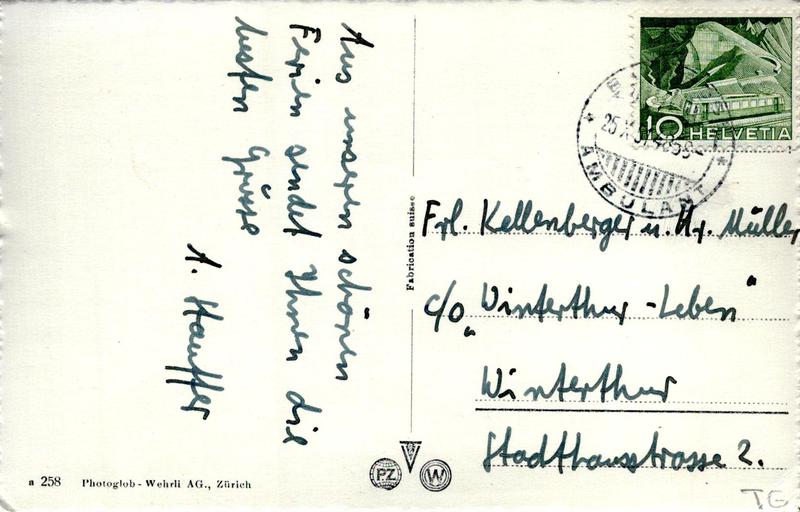 Aus unseren schönen
Ferien sendet Ihnen die
besten Grüsse
A. Hauffer
Fabrication suisse
10 HELVETIA
AMBULANT
Frl. Kellenberger u. Hr. Müller
c/o "Winterthur-Leben"
Winterthur
Stadthausstrasse 2.
PZ
W
a 258 Photoglob-Wehrli AG., Zürich
TG